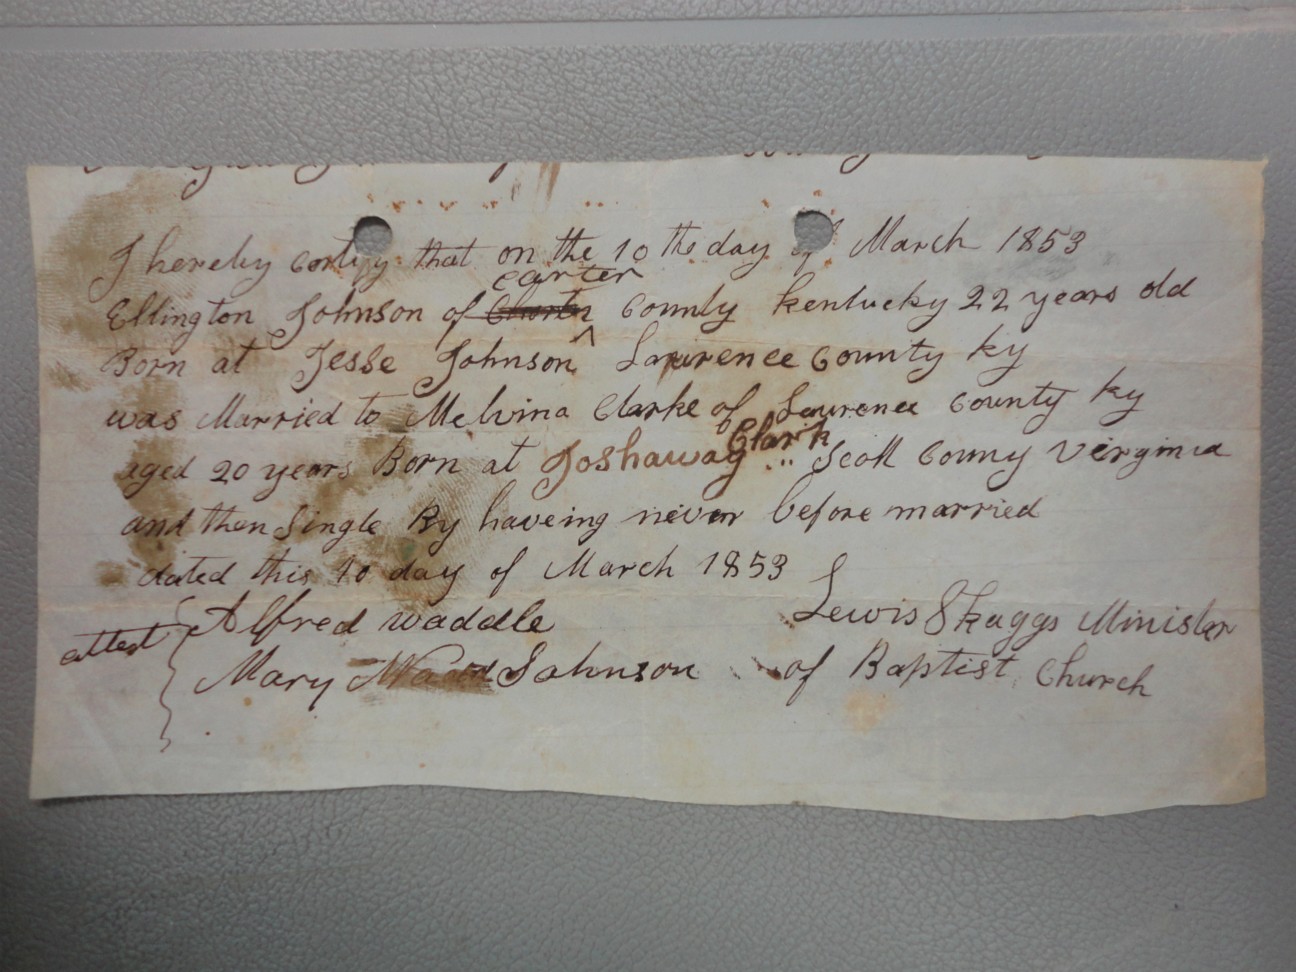 I hereby certify that on the 10 th day of March 1853
carter
Ellington Johnson of County kentucky 22 years old
Born at Jesse Johnson ^ Lawrence county ky
was Married to Melvina Clarke of Lawrence county ky
Clark
aged 20 years Born at Joshaway Scott Couny Virginia
and then Single By haveing never before married
dated this 10 day of March 1853
attest { Alfred waddle Lewis Skaggs Minister
Mary Johnson of Baptist Church